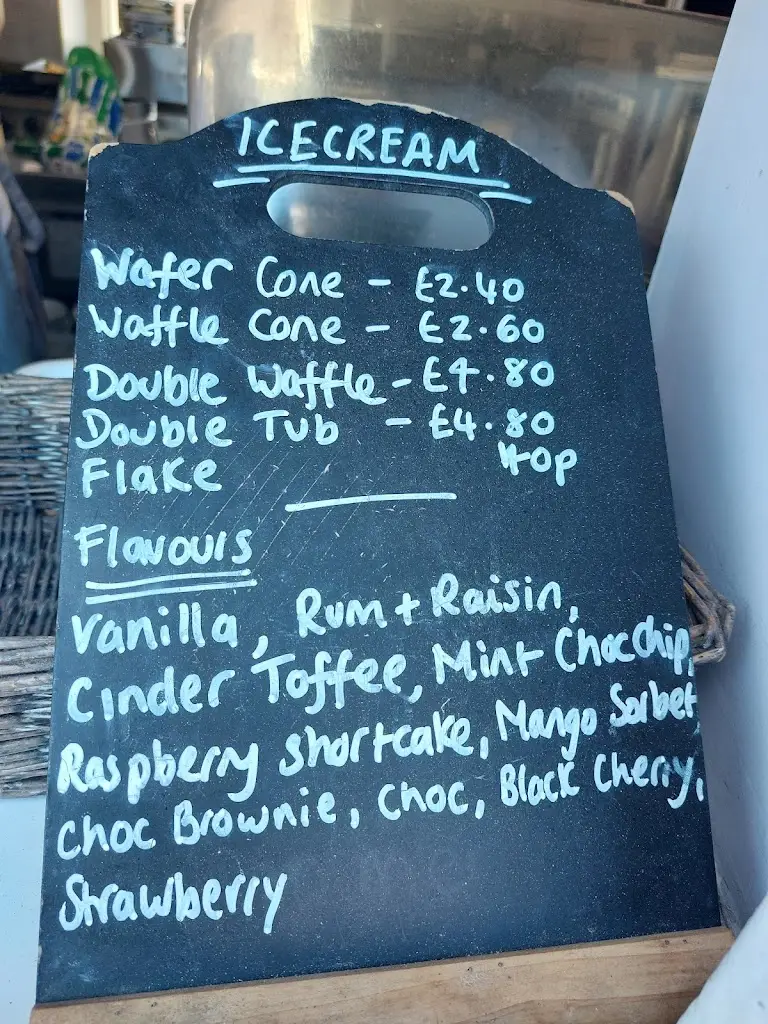 ICECREAM
Wafer Cone - £2.40
Waffle Cone - £2.60
Double Waffle - £4.80
Double Tub - £4.80
Flake 40p
Flavours
Vanilla, Rum + Raisin,
Cinder Toffee, Mint Chocchip,
Raspberry shortcake, Mango Sorbet
Choc Brownie, Choc, Black Cherry,
Strawberry